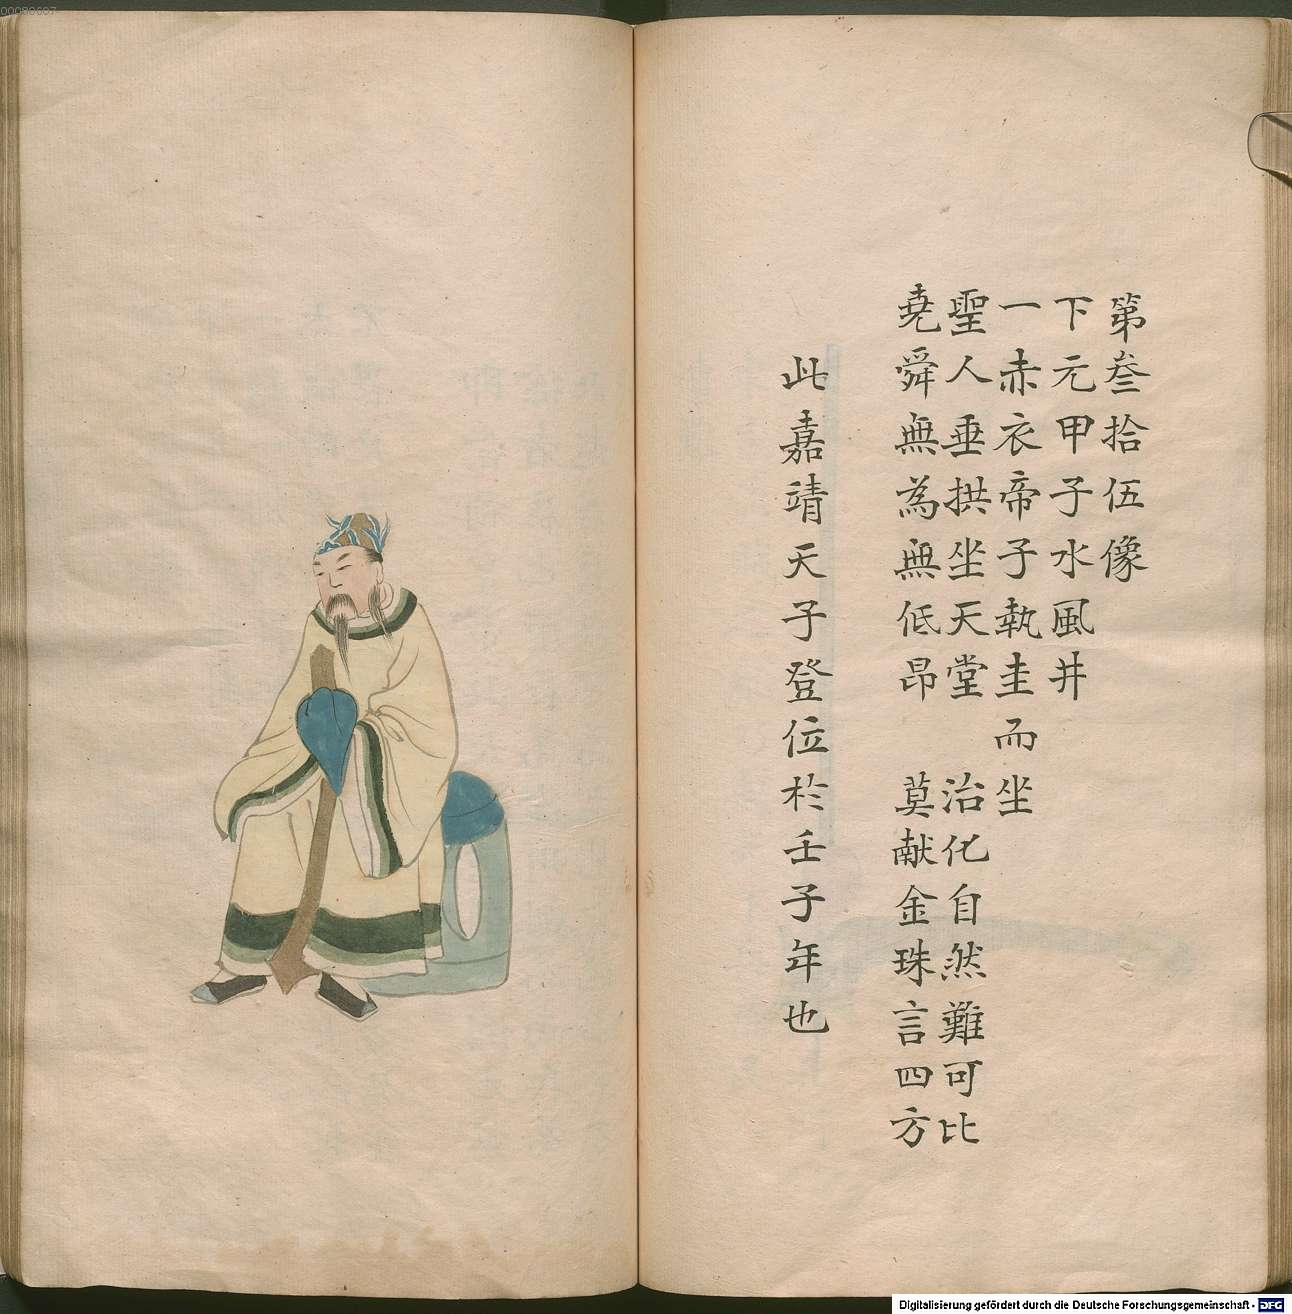 第叁拾伍像
下元甲子水風井
一赤衣帝子執圭而坐
聖人垂拱坐天堂　治化自然難可比
堯舜無為無低昂　莫献金珠言四方
此嘉靖天子登位於壬子年也
00080697
Digitalisierung gefördert durch die Deutsche Forschungsgemeinschaft - DFG